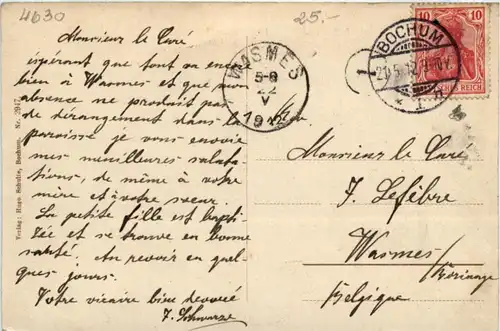 4630
25.-
Monsieur le Curé
espérant que tout va encore
bien à Wasmes et que mon
absence ne produit pas
de dérangement dans la
paroisse je vous envoie
mes meilleures saluta-
tions, de même à votre
mère et à votre sœur.
La petite fille est bapti-
zée et se trouve en bonne
santé. Au revoir en quel-
ques jours.
Votre vicaire bien dévoué
F. Schwarze
Verlag: Hugo Schulte, Bochum. Nr. 2947
WASMES
5-6
22
V
1912
BOCHUM
21.5.12.
* 1 n
10 10
DEUTSCHES REICH
Monsieur le Curé
F. Lefèbre
Wasmes/
Borinage
Belgique